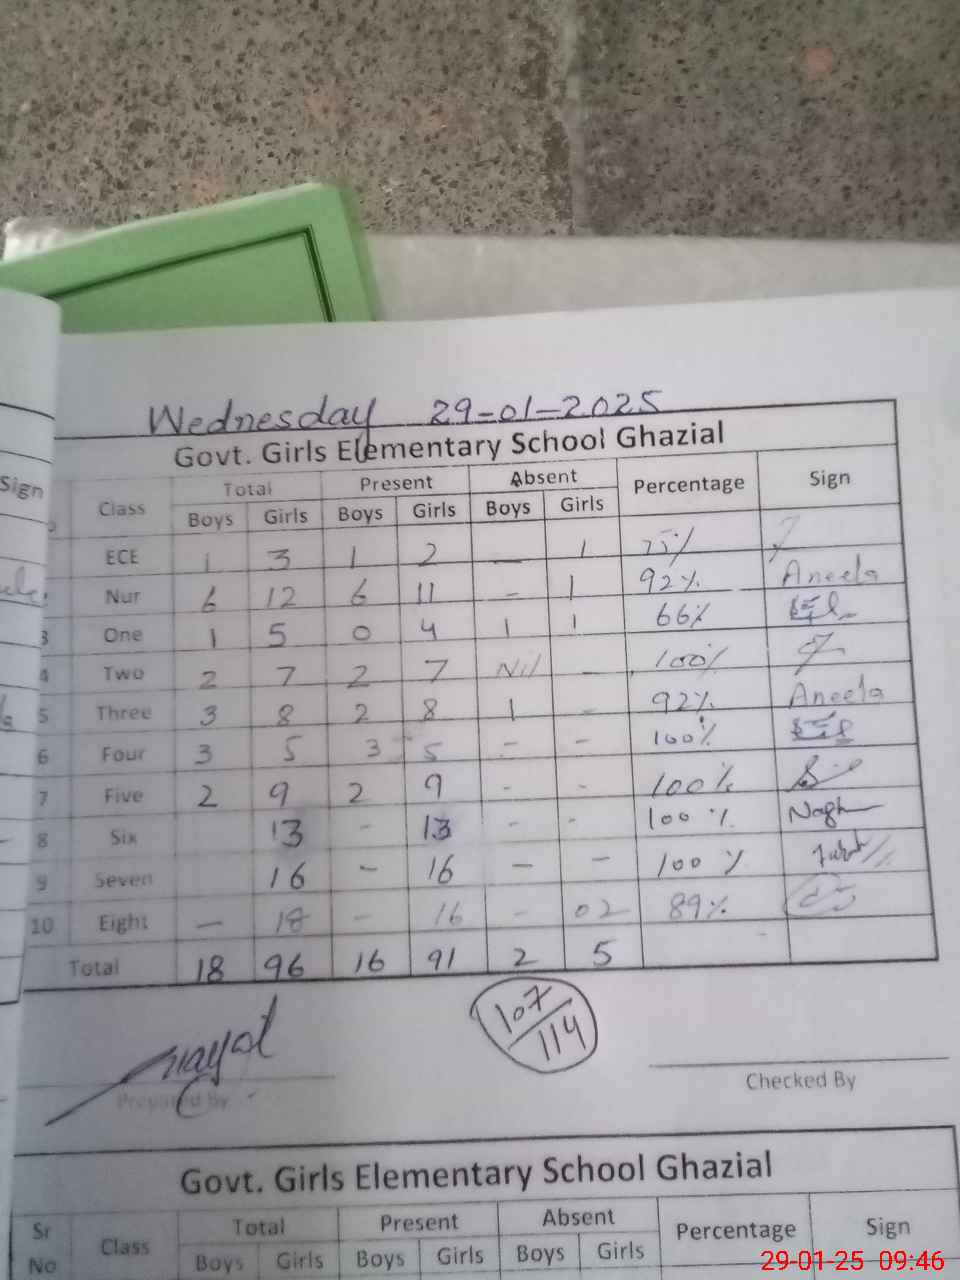 Wednesday 29-01-2025
Govt. Girls Elementary School Ghazial
Sign Class Total Present Absent Percentage Sign
Boys Girls Boys Girls Boys Girls
ECE 1 3 1 2 — 1 75%
Nur 6 12 6 11 - 1 92% Aneela
3 One 1 5 0 4 1 1 66%
4 Two 2 7 2 7 Nil - 100%
5 Three 3 8 2 8 1 - 92% Aneela
6 Four 3 5 3 5 - - 100%
7 Five 2 9 2 9 - - 100%
8 Six 13 - 13 - - 100%
9 Seven 16 - 16 - - 100%
10 Eight — 18 - 16 - 02 89%
Total 18 96 16 91 2 5
107/114
Prepared By
Checked By
Govt. Girls Elementary School Ghazial
Sr No Class Total Present Absent Percentage Sign
Boys Girls Boys Girls Boys Girls
29-01-25 09:46